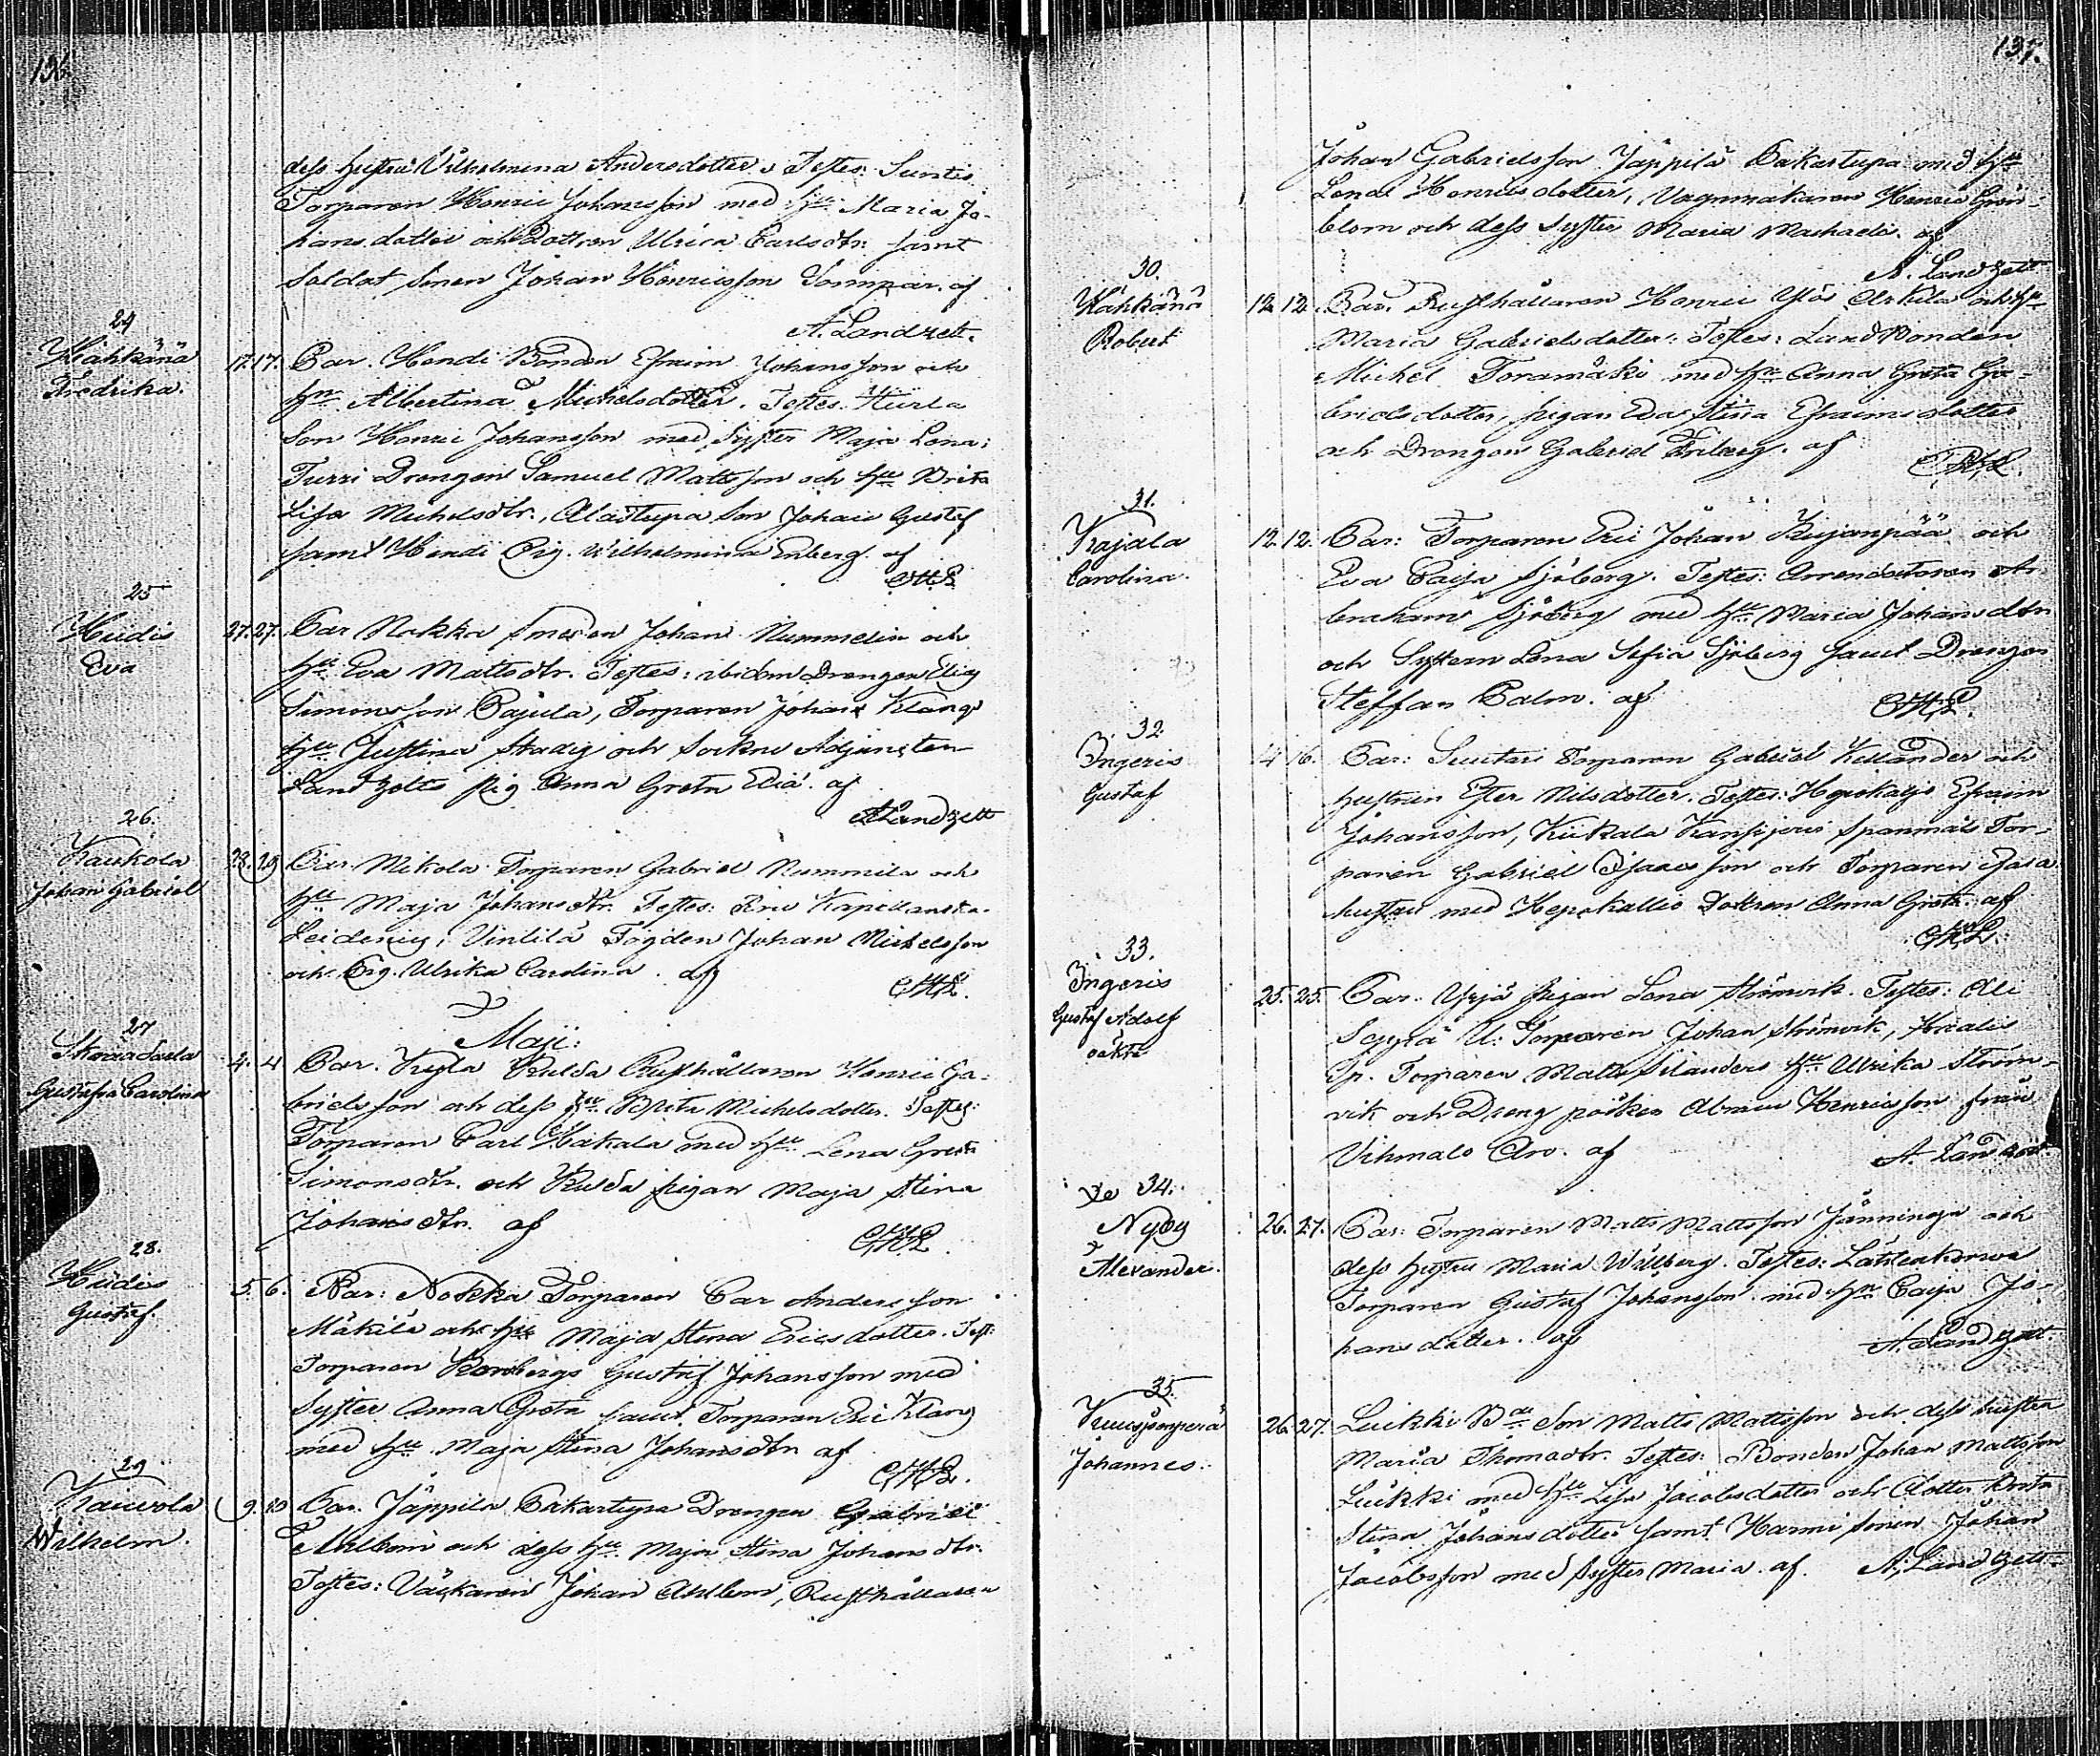 136.
dess hustru Vilhelmina Andersdotter. Testes: Suntis
Torparen Henric Johansson med hu Maria Jo-
hansdotter och Dottren Ulrica Carlsdtr samt
Soldat sonen Johan Henricsson af
A. Landzett.
24
Hähkänä
Fredrika.
17. 17. Par. Hendi Bonden Efraim Johansson och
hu Albertina Michelsdotter. Testes:
Son Henric Johansson med Syster Maja Lena;
Turri Drengen Samuel Mattsson och hu Brita
Lisa Michelsdtr, Alastupa Son Johan Gustaf
samt Hendi Pig. Wilhelmina Enberg. af
25
Hiidis
Eva
27. 27. Par Nokka smeden Johan Nummelin och
hu Eva Mattsdtr. Testes: ibidm Drengen Elias
Simonsson Pajula, Torparen Johan Klangs
hu Justina Stadig och Sockne Adjuncten
Landzetts pig Anna Greta Eliä. af
A Landzett
26.
Kaukola
Johan Gabriel
28. 29 Par. Mikola Torparen Gabriel Nummila och
hu Maja Johansdtr. Testes:
Leidenius, Vintilä Fogden Johan Michelsson
och Pig. Ulrika Carolina. af
Maji:
27
Gustafva Carolina
4. 4. Par. Kylä Rulda Rusthållaren Henric Ga-
brielsson och dess hu Brita Michelsdotter. Testes:
Torparen Carl Hakala med hu Lena Greta
Simonsdtr. och Rulda pigan Maja Stina
Johansdtr. af
28.
Hiidis
Gustaf.
5. 6. Par: Nokka Torparen Carl Andersson
Mäkilä och hu Maja Stina Ericsdotter. Test:
Torparen Gustaf Johansson med
Syster Anna Greta samt Torparen Eric Klang
med hu Maja Stina Johansdtr af
29
Kaiwola
Wilhelm.
9. 10 Par. Jäppilä Bakartupa Drengen Gabriel
Ahlbom och dess hu Maja Stina Johansdtr.
Testes: Johan Ahlbom, Rusthållaren
137.
Johan Gabrielsson Jäppilä Bakartupa med hu
Lena Henricsdotter, Vagnmakaren Henric Grön-
blom och dess Syster Maria af
A. Landzett
30.
Hähkänä
Robert
12. 12. Par. Rusthållaren Henric Ylös Arkila och hu
Maria Gabrielsdotter: Testes: Landbonden
Michel Toramäki med hu Anna Greta Ga-
brielsdotter, pigan Eva Stina Efraimsdotter
och Drengen Gabriel Friberg. af
31.
Kojala
Carolina.
12. 12. Par: Torparen Eric Johan Kujanpää och
Eva Caisa Sjöberg. Testes: Arrendatoren A-
braham Sjöberg med hu Maria Johansdtr
och Systern Lena Sofia Sjöberg samt Drengen
Steffan Palm. af
32.
Ingeris
Gustaf
14 16. Par: Suutari Torparen Gabriel Kellander och
hustrun Ester Nilsdotter. Testes: Hepokallio Efraim
Johansson, Kukala Spanmåls Tor-
paren Gabriel Isaacsson och Torparen
hustru med Hepokallio Dottren Anna Greta. af
33.
Ingeris
Gustaf Adolf
oäkta
25. 25. Par. Yrjä Pigan Lena Strömvik. Testes: Ali
Säylä U: Torparen Johan Strömvik,
Torparen Matts Silanders hu Ulrika Ström-
vik och Dreng pojken Abram Henricsson från
Vihmalo Aro. af
A. Landzett
34.
Nyby
Alexander.
26. 27. Par: Torparen Matts Mattsson Jänninga och
dess hustru Maria Wallberg. Testes: Lähteenkorwa
Torparen Gustaf Johansson med hu Caisa Jo-
hansdotter. af
A. Landzett.
35.
Johannes.
26. 27. Luikki Bde Son Matts Mattsson och dess hustru
Maria Thomasdtr. Testes: Bonden Johan Mattsson
Luikki med hu Lisa Jacobsdotter och dotter Brita
Stina Johansdotter samt Hanni sonen Johan
Jacobsson med Syster Maria. af A. Landzett